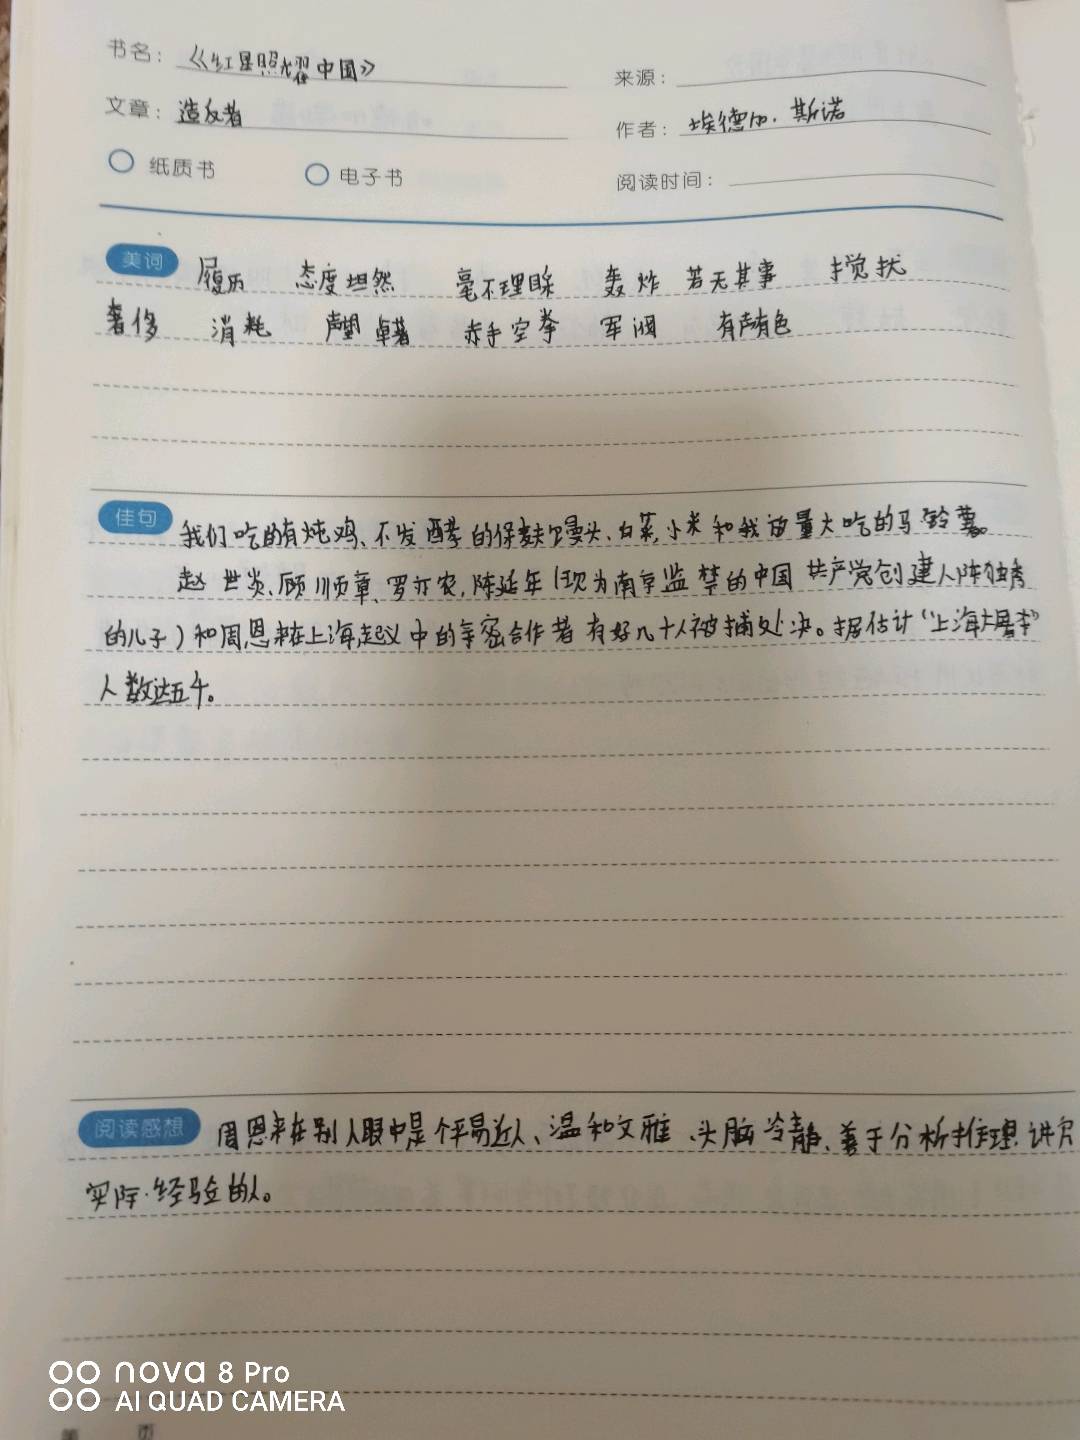 书名：《红星照耀中国》
来源：
文章：造反者
作者：埃德加·斯诺
纸质书 电子书
阅读时间：
美词 履历 态度坦然 毫不理睬 轰炸 若无其事 搅扰
奢侈 消耗 声望卓著 赤手空拳 军阀 有声有色
佳句 我们吃的有炖鸡、不发酵的保麸馒头、白菜、小米和我放量大吃的马铃薯。
赵世炎、顾顺章、罗亦农，陈延年（现为南京监禁的中国共产党创建人陈独秀
的儿子）和周恩来在上海起义中的亲密合作者有好几十人被捕处决。据估计“上海大屠杀”
人数达五千。
阅读感想 周恩来在别人眼中是个平易近人、温和文雅、头脑冷静、善于分析推理 讲究
实际·经验的人。
nova 8 Pro
AI QUAD CAMERA
第 页